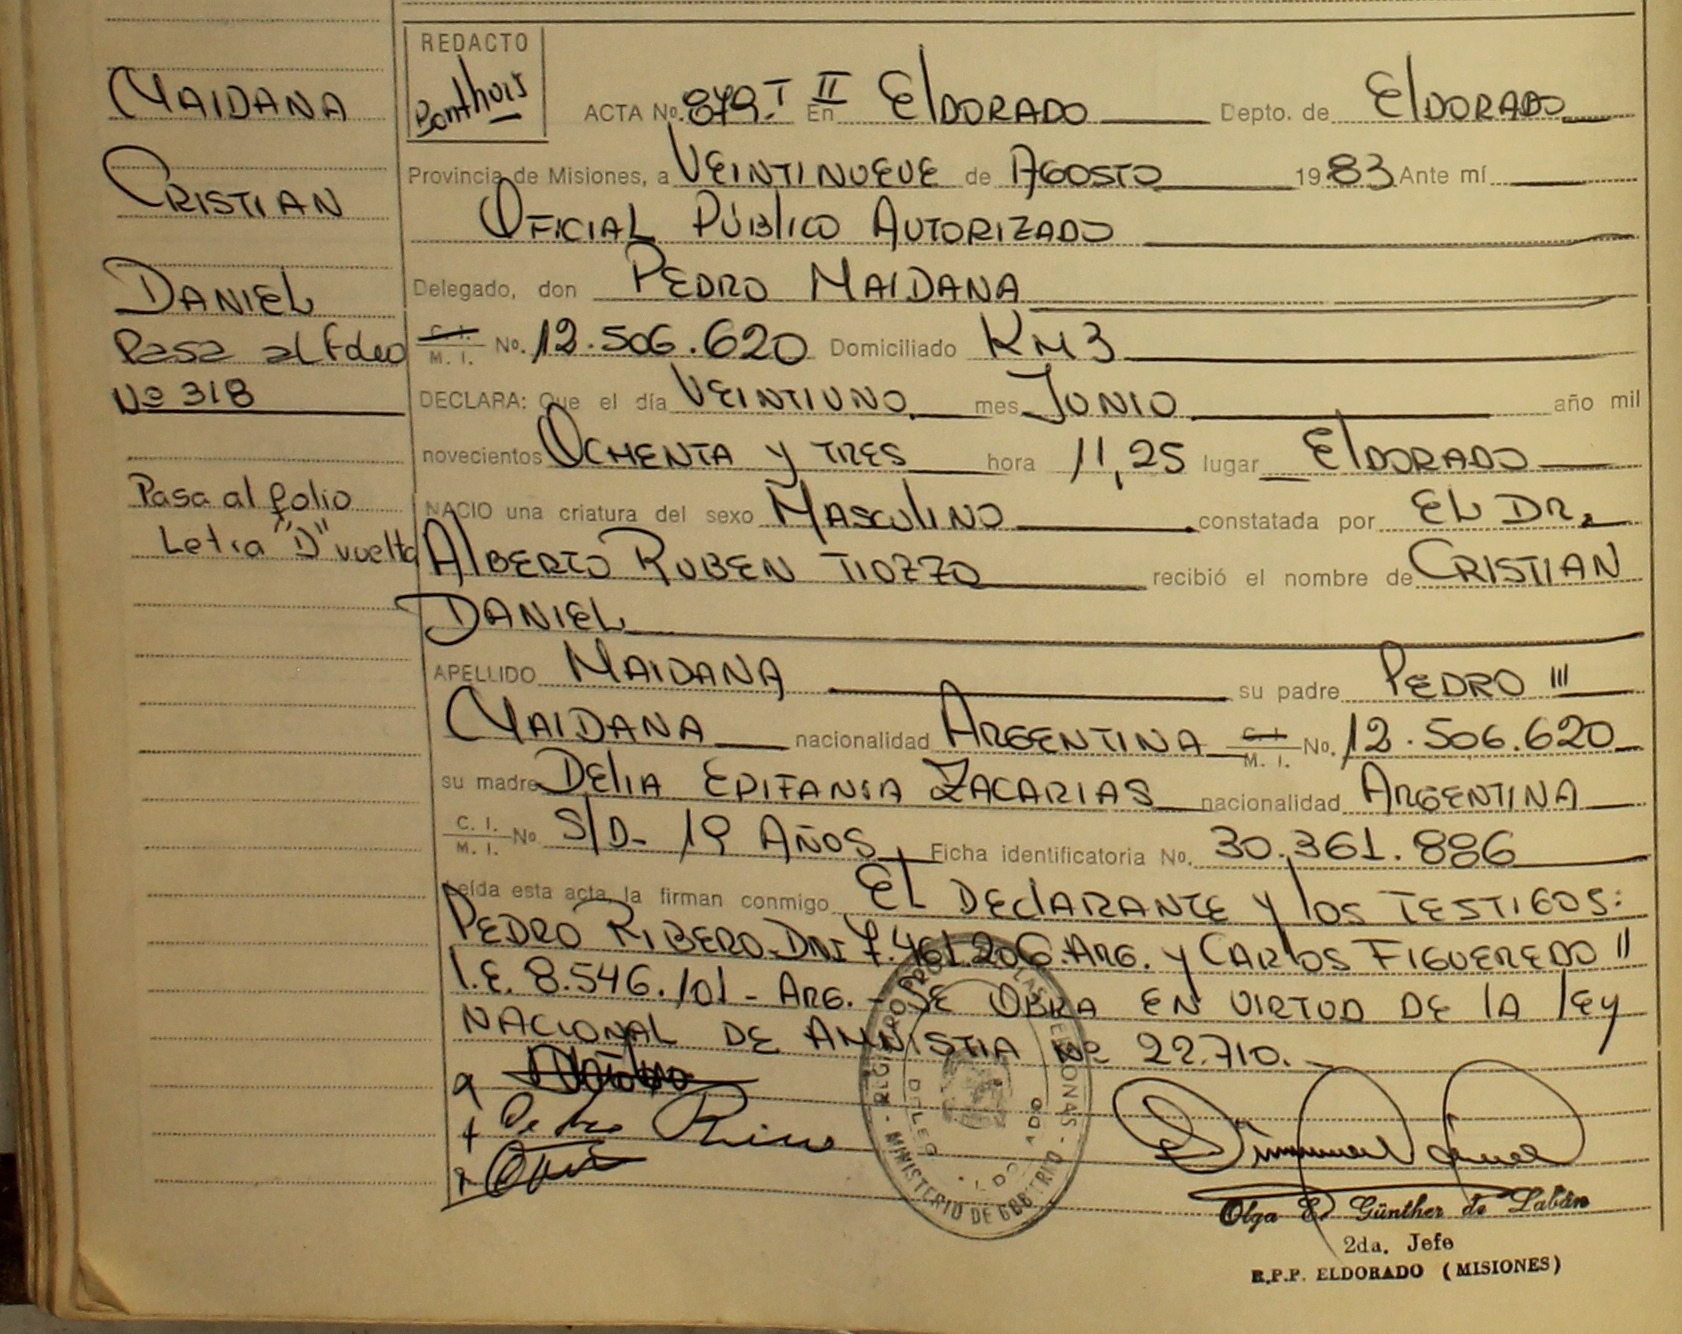 MAIDANA
CRISTIAN
DANIEL
Pasa al Folio
Nº 318
Pasa al folio
Letra "D" vuelta
REDACTO
ACTA No. 879. T II En ELDORADO Depto. de ELDORADO
Provincia de Misiones, a VEINTINUEVE de AGOSTO 1983 Ante mí
OFICIAL PÚBLICO AUTORIZADO
Delegado, don PEDRO MAIDANA
C. I. M. I. No. 12.506.620 Domiciliado KM 3
DECLARA: Que el día VEINTIUNO mes JUNIO año mil
novecientos OCHENTA Y TRES hora 11,25 lugar ELDORADO
NACIO una criatura del sexo MASCULINO constatada por EL DR.
ALBERTO RUBEN TIOZZO recibió el nombre de CRISTIAN
DANIEL
APELLIDO MAIDANA su padre PEDRO III
MAIDANA nacionalidad ARGENTINA C. I. M. I. No. 12.506.620
su madre DELIA EPIFANIA ZACARIAS nacionalidad ARGENTINA
C. I. M. I. No. S/D- 19 AÑOS Ficha identificatoria No. 30.361.886
Leída esta acta, la firman conmigo EL DECLARANTE Y LOS TESTIGOS:
PEDRO RIBERO. DNI 7.461.206. ARG. Y CARLOS FIGUEREDO II
L.E. 8.546.101 - ARG. - SE OBRA EN VIRTUD DE LA LEY
NACIONAL DE AMNISTIA Nº 22.710.
MINISTERIO DE GOBIERNO
Olga E. Günther de Labán
2da. Jefe
R.P.P. ELDORADO (MISIONES)